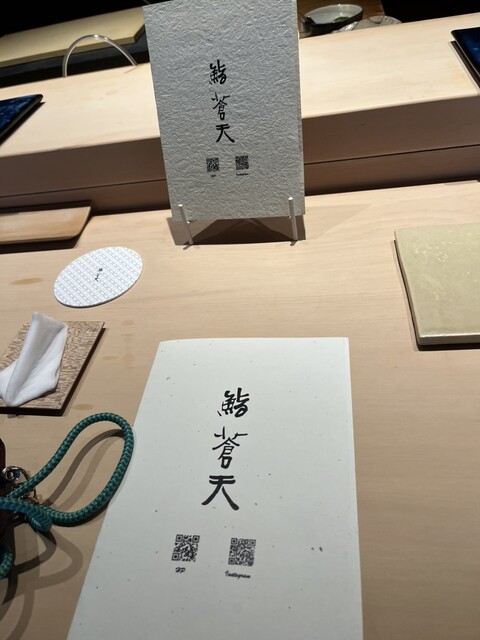 鮨
蒼
天
鮨
蒼
天
HP
Instagram